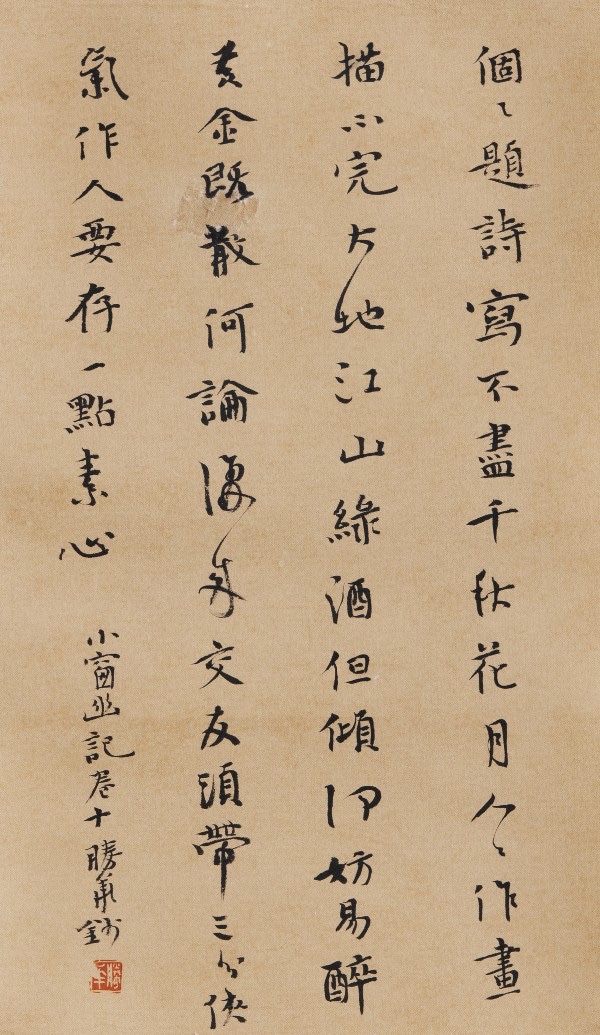 個〻題詩寫不盡千秋花月人〻作畫
描不完大地江山綠酒但傾何妨易醉
黃金既散何論復來交友須帶三分俠
氣作人要存一點素心 小窗幽記卷十勝鈔